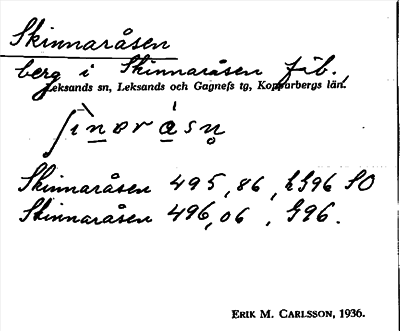 Skinnaråsen
berg i Skinnaråsen fäb.,
Leksands sn, Leksands och Gagnefs tg, Kopparbergs län.
Skinnaråsen 495,86, G96 SO
Skinnaråsen 496,06, G96.
ERIK M. CARLSSON, 1936.